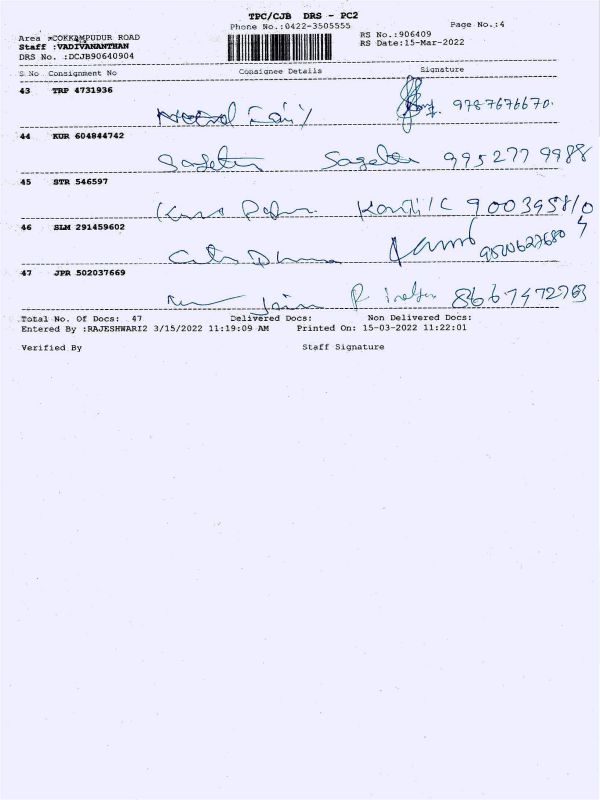 TPC/CJB DRS - PC2
Phone No.:0422-3505555 Page No.:4
Area :COKKAMPUDUR ROAD RS No.:906409
Staff :VADIVANANTHAN RS Date:15-Mar-2022
DRS No. :DCJB90640904
S No Consignment No Consignee Details Signature
43 TRP 4731936
9787676670.
44 KUR 604844742
9952779988
45 STR 546597
46 SLM 291459602
47 JPR 502037669
Jain 8667472763
Total No. Of Docs: 47 Delivered Docs: Non Delivered Docs:
Entered By :RAJESHWARI2 3/15/2022 11:19:09 AM Printed On: 15-03-2022 11:22:01
Verified By Staff Signature